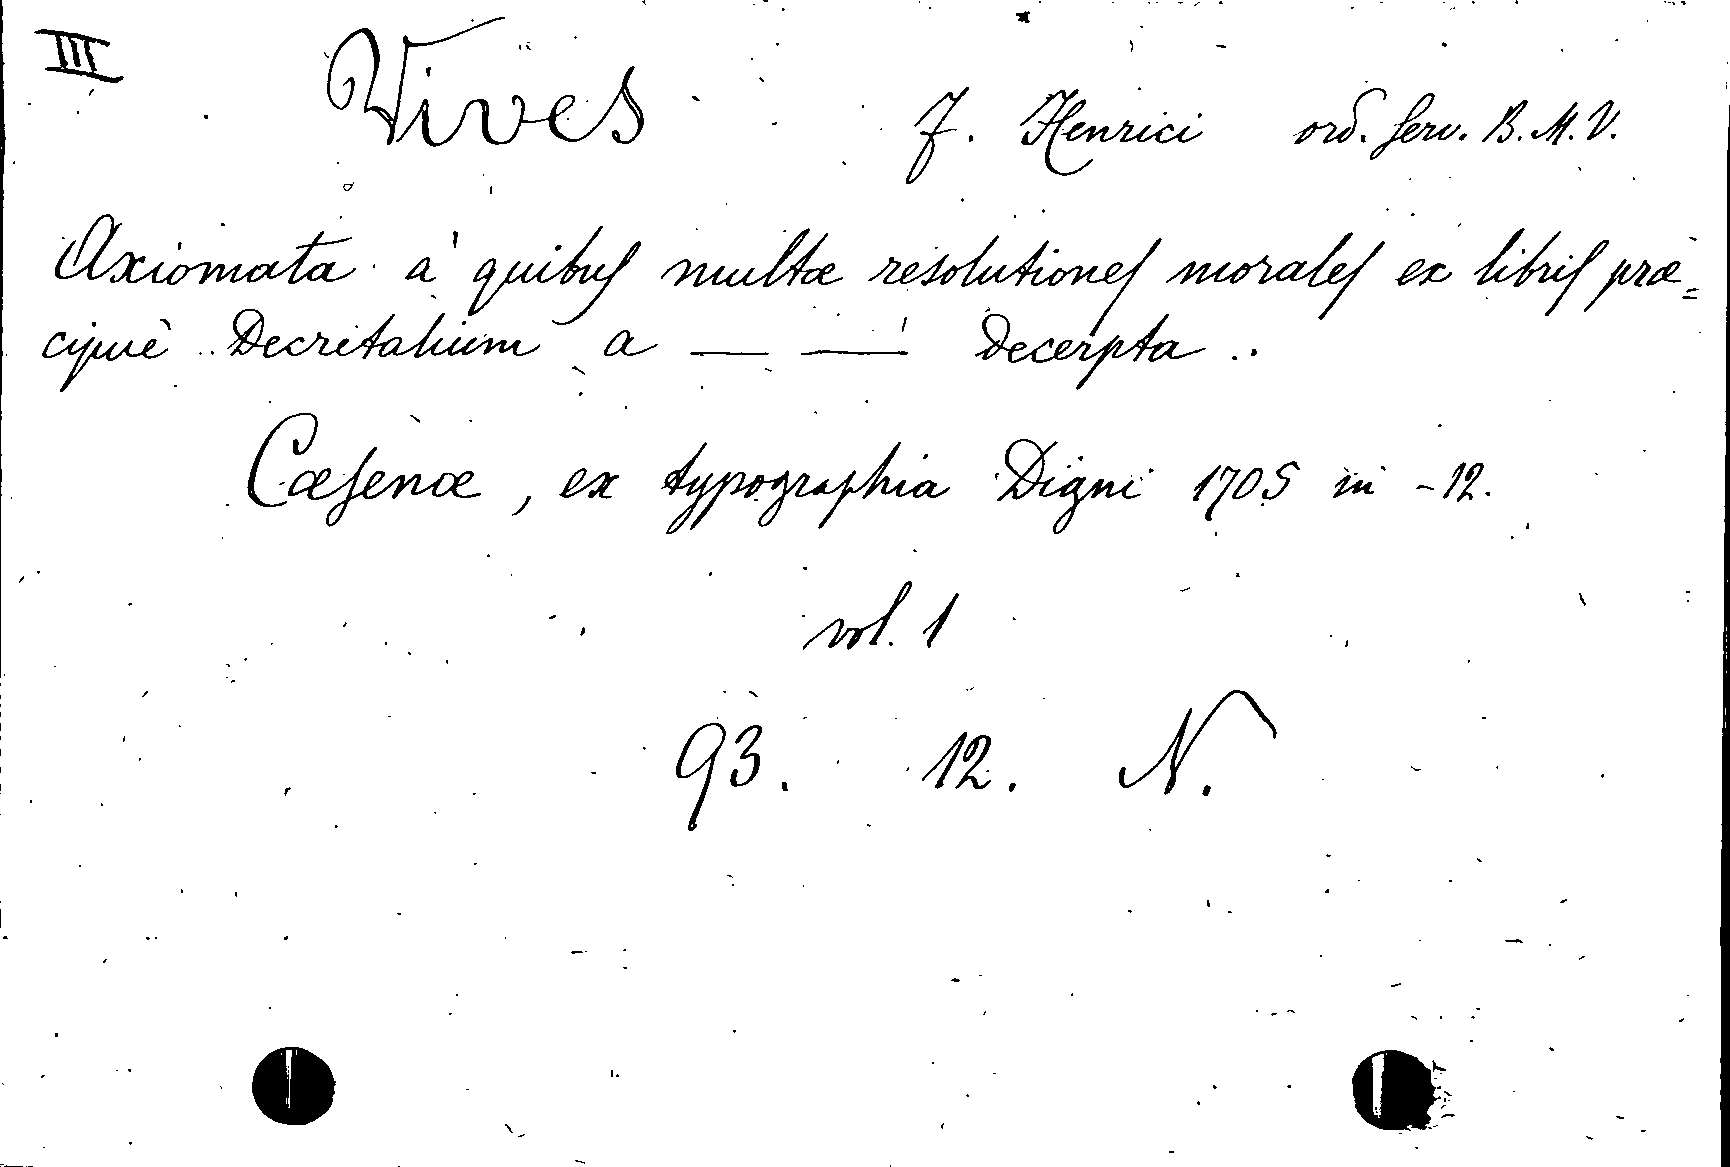 III Vives F. Henrici ord. Serv. B. M. V.
Axiomata à quibus multæ resolutiones morales ex libris præ=
cipuè Decretalium a — — decerpta ..
Cæsenæ, ex typographia Digni 1705 in -12.
vol. 1
93. 12. N.